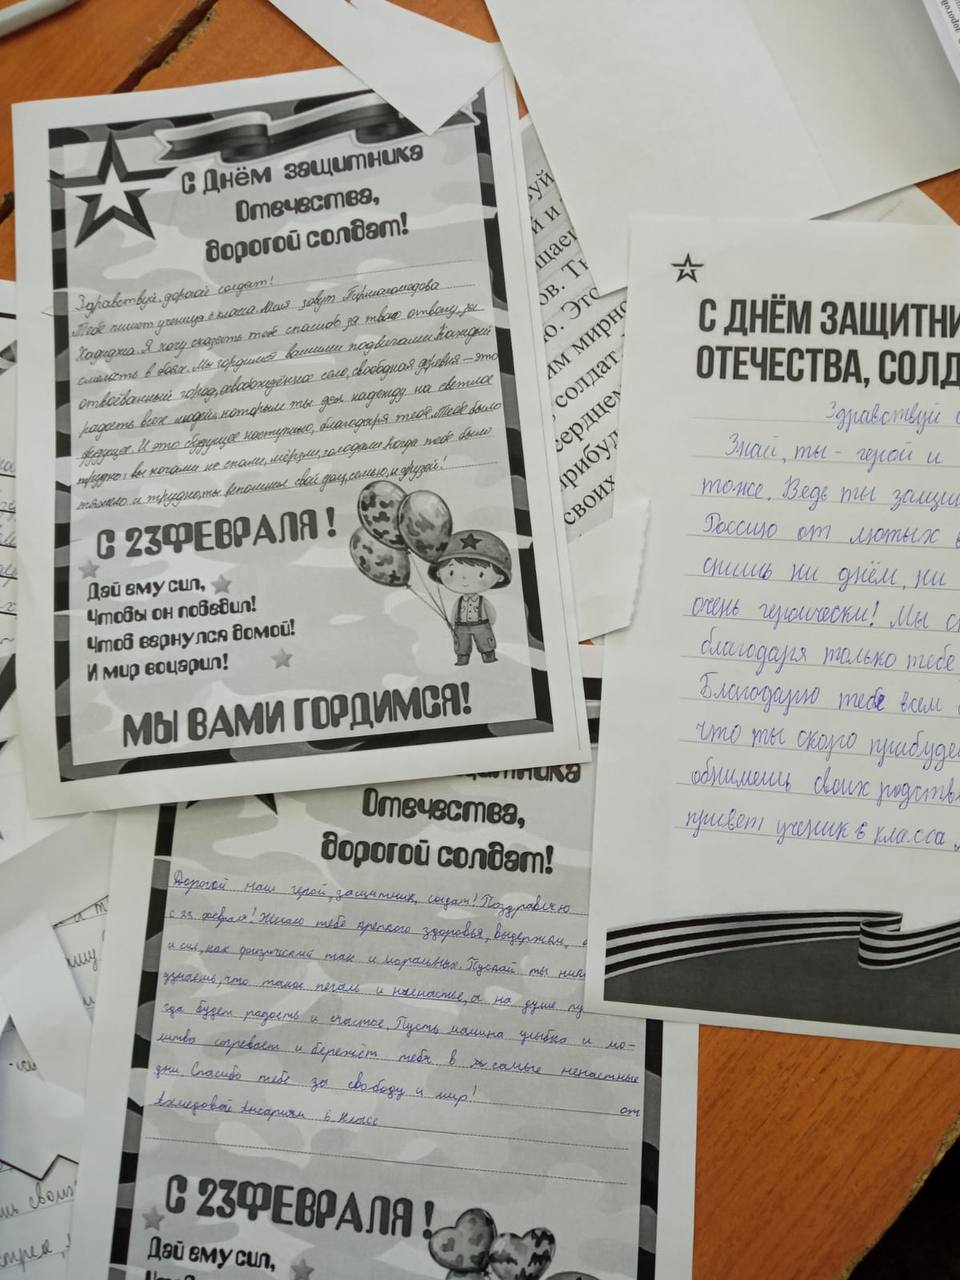 С Днём защитника
Отечества,
дорогой солдат!
Здравствуй, дорогой солдат!
Тебе пишет ученица 6 класса. Меня зовут Пирмагомедова
Хадиджа. Я хочу сказать тебе спасибо за твою отвагу, за
смелость в боях. Мы гордимся вашими подвигами. Каждый
отвоёванный город, освобождённое село, свободная деревня – это
радость всех людей, которым ты дал надежду на светлое
будущее. И это будущее наступило, благодаря тебе. Тебе было
трудно: вы ночами не спали, мёрзли, голодали. Когда тебе было
тяжело и трудно, ты вспоминал свой дом, семью, и друзей!
С 23 ФЕВРАЛЯ !
Дай ему сил,
Чтобы он победил!
Чтоб вернулся домой!
И мир воцарил!
МЫ ВАМИ ГОРДИМСЯ!
им мирно
солдат
сердцем
прибуд
своих
С ДНЁМ ЗАЩИТНИ
ОТЕЧЕСТВА, СОЛД
Здравствуй с
Знай, ты - герой и
тоже. Ведь ты защи
Россию от лютых в
спишь ни днём, ни
очень героически! Мы с
благодаря только тебе
Благодарю тебя всем
что ты скоро прибуде
обнимешь своих родств
привет ученик 6 класса
Отечества,
дорогой солдат!
Дорогой наш герой, защитник, солдат! Поздравляю
с 23 февраля! Желаю тебе крепкого здоровья, выдержки,
и сил, как физический так и моральных. Пускай ты ник
думаешь, что такое печаль и ненастье, а на душе пу
зда будет радость и счастье. Пусть мамина улыбка и мо-
литва согревает и бережёт тебя в самые ненастные
дни. Спасибо тебе за свободу и мир! от
Ахмедовой Ансарият 6 класс
С 23ФЕВРАЛЯ !
Дай ему сил,